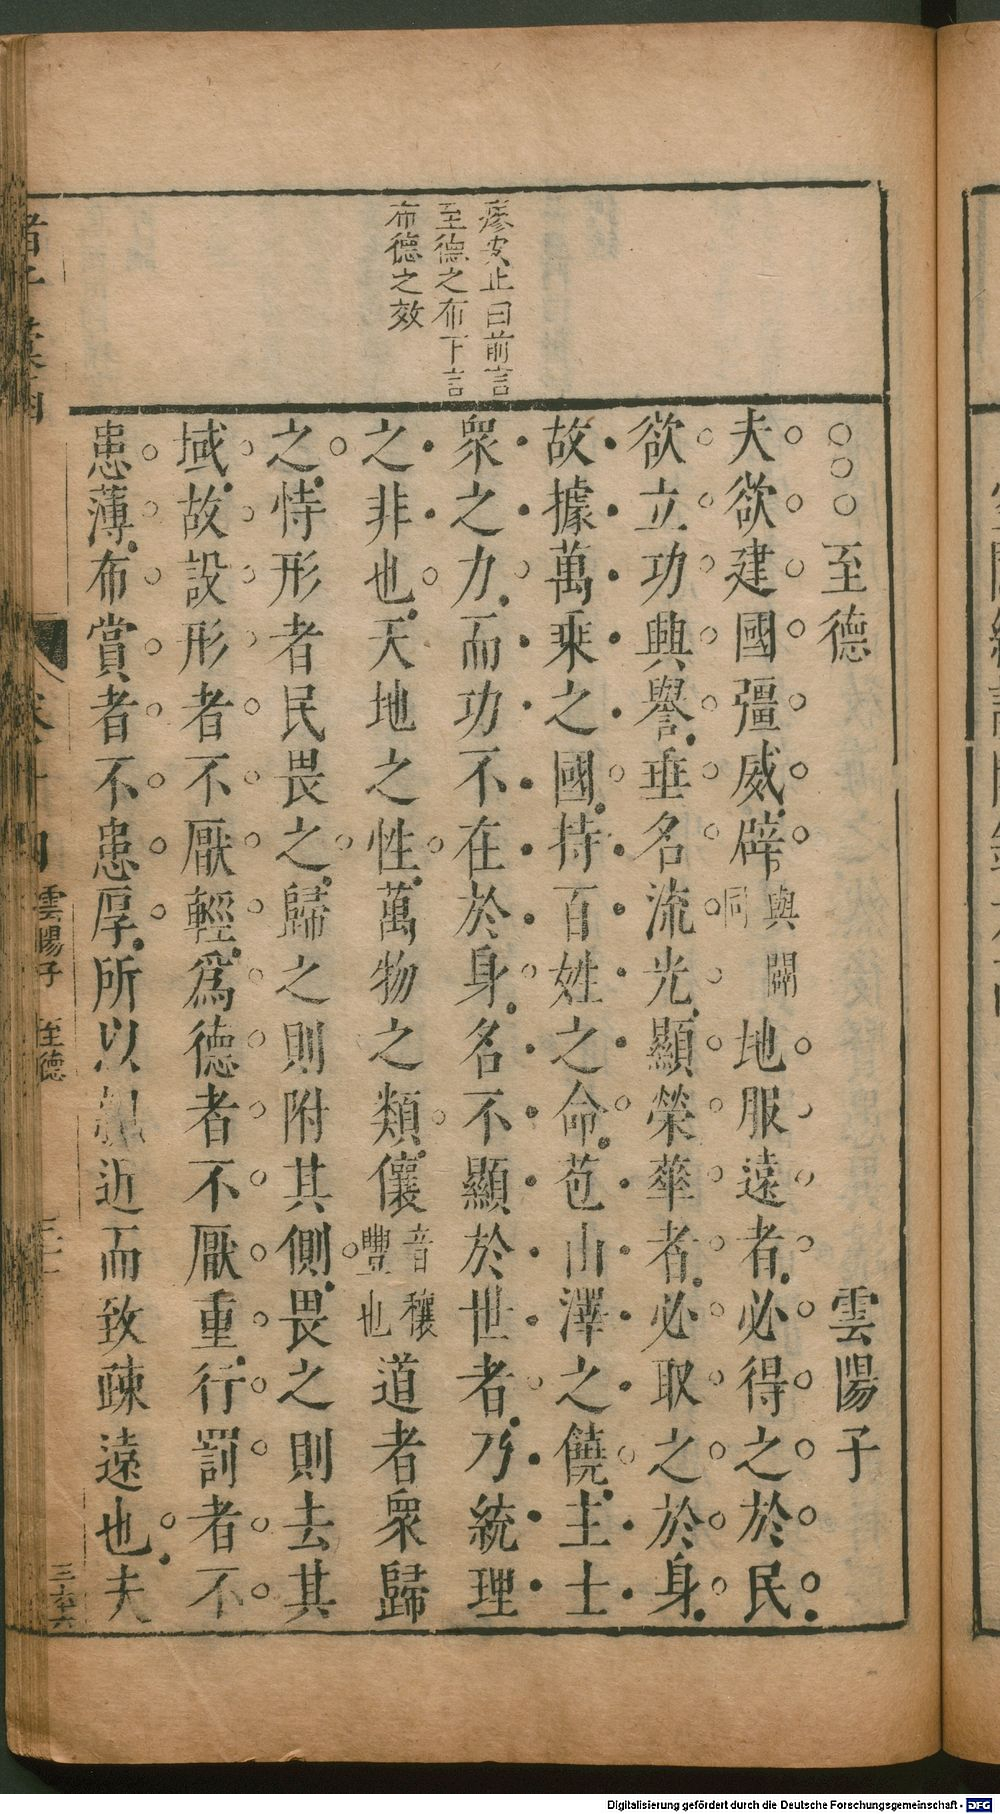 廖安止曰前言
至德之布下言
布德之效
至德　雲陽子
夫欲建國彊威辟與闢同地服遠者必得之於民
欲立功興譽垂名流光顯榮華者必取之於身
故據萬乘之國持百姓之命苞山澤之饒主士
眾之力而功不在於身名不顯於世者乃統理
之非也天地之性萬物之類儴音穰豐也道者眾歸
之恃形者民畏之歸之則附其側畏之則去其
域故設形者不厭輕爲德者不厭重行罰者不
患薄布賞者不患厚所以親近而致疎遠也夫
諸子彙函
雲陽子　至德
三六六
Digitalisierung gefördert durch die Deutsche Forschungsgemeinschaft - DFG